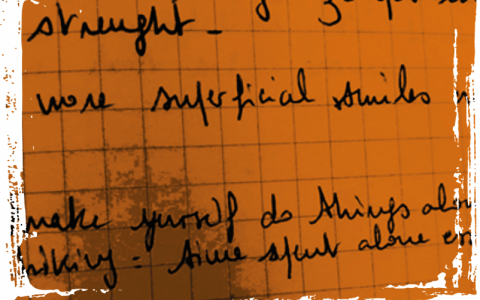 strenght -
more superficial smiles
make yurself do things alon
hiking - time spent alone en